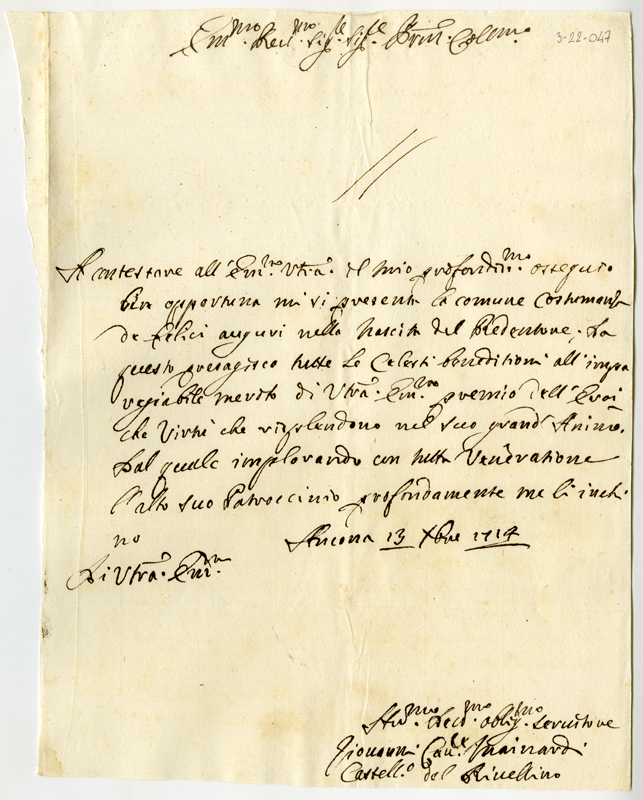 Em.mo Rev.mo Sig.re Sig.re Prin. Col.mo
3-22-047
A contestare all'Em.za V.tra il mio profondiss.mo ossequio
ben opportuna mi si presenta la comune costumanza
de felici auguri nella Nascita del Redentore; Da
questo presagisco tutte le Celesti beneditioni all'impa
regiabile merito di V.tra Em.za premio dell'Eroi
che Virtù che risplendono nel suo grand'Animo.
Dal quale implorando con tutta Veneratione
l'alto suo Patroccinio profondamente me li inchi
no
Ancona 13 Xbre 1714
Di V.tra Em.za
Hu.mo Dev.mo oblig.mo servitore
Giovanni Cav.re Mainardi
Castell.o del Rivellino